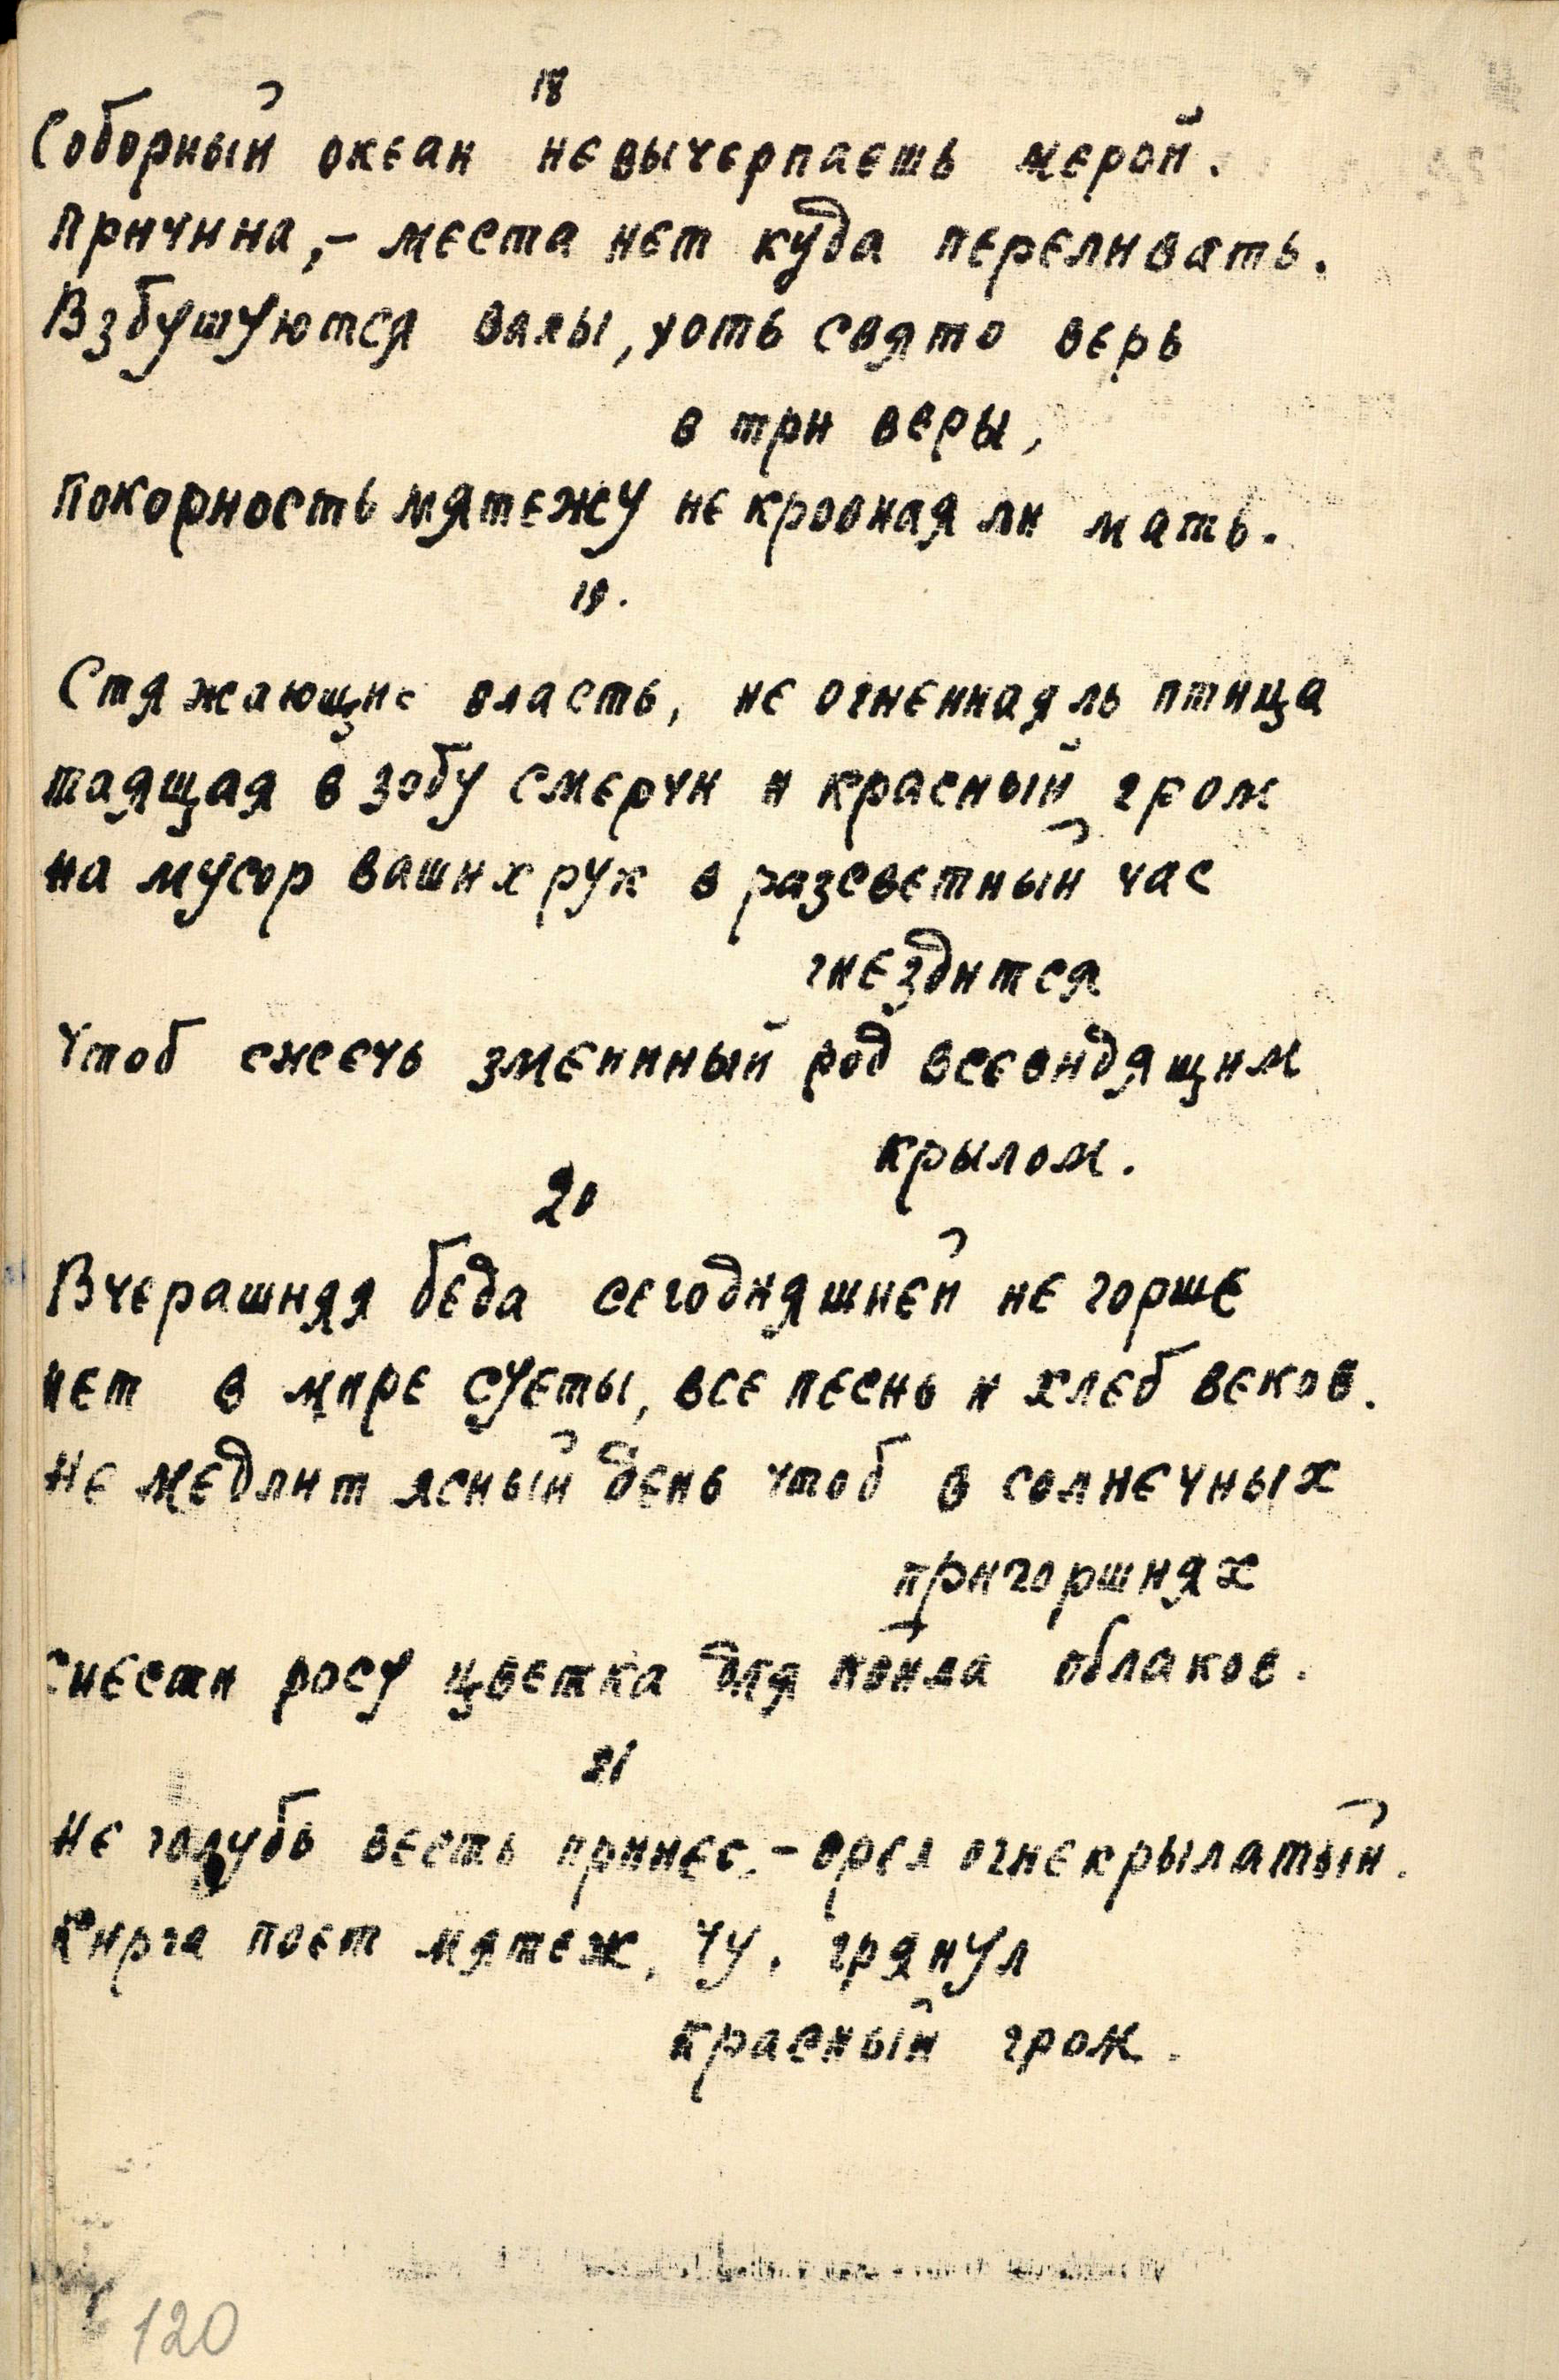 18
Соборный океан невычерпаешь мерой.
Причина,- места нет куда переливать.
Взбушуются валы, хоть свято верь
в три веры,
Покорность мятежу не кровная ли мать.
19.
Стяжающие власть, не огненная ль птица
таящая в зобу смерчи и красный гром
на мусор ваших рук в разсветный час
гнездится
Чтоб сжечь змеинный род всевидящим
крылом.
20
Вчерашняя беда сегодняшней не горше
нет в мире суеты, все песнь и хлеб веков.
Не медлит ясный день чтоб в солнечных
пригоршнях
снести росу цветка для пойла облаков.
21
Не голубь весть принес,- орел огнекрылатый.
Кирга поет мятеж, Чу, грянул
красный гром.
120